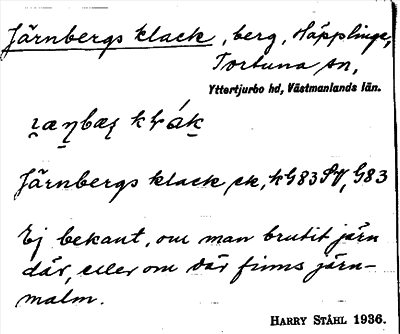 Järnbergs klack, berg, Häpplinge,
Tortuna sn,
Yttertjurbo hd, Västmanlands län.
Järnbergs klack sk, kG83 SV, G83
Ej bekant, om man brutit järn
där, eller om där finns järn-
malm.
HARRY STÅHL 1936.